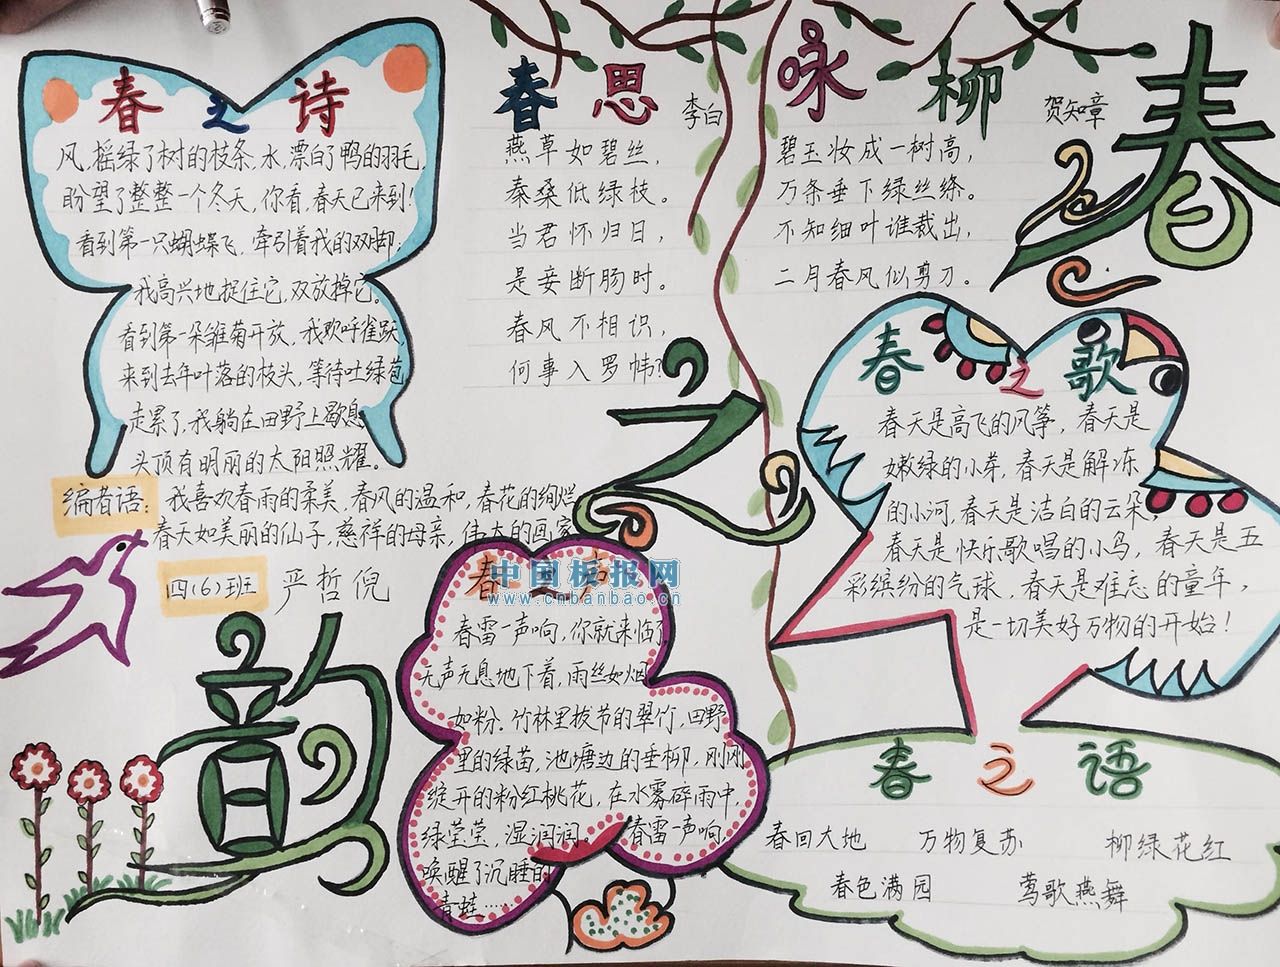 春之诗
风,摇绿了树的枝条,水,漂白了鸭的羽毛,
盼望了整整一个冬天,你看,春天已来到!
看到第一只蝴蝶飞,牵引着我的双脚;
我高兴地捉住它,双放掉它。
看到第一朵雏菊开放,我欢吁雀跃,
来到去年叶落的枝头,等待吐绿苞
走累了,我躺在田野上歇息
头顶有明丽的太阳照耀。
编者语:我喜欢春雨的柔美,春风的温和,春花的绚烂
春天如美丽的仙子,慈祥的母亲,伟大的画家
四(6)班 严哲倪
春思 李白
燕草如碧丝,
秦桑低绿枝。
当君怀归日,
是妾断肠时。
春风不相识,
何事入罗帏?
咏柳 贺知章
碧玉妆成一树高,
万条垂下绿丝绦。
不知细叶谁裁出,
二月春风似剪刀。
春
之
韵
春之歌
春天是高飞的风筝,春天是
嫩绿的小芽,春天是解冻
的小河,春天是洁白的云朵,
春天是快乐歌唱的小鸟,春天是五
彩缤纷的气球,春天是难忘的童年,
是一切美好万物的开始!
春之声
中国板报网
www.cnbanbao.cn
春雷一声响,你就来临了
无声无息地下着,雨丝如烟
如粉.竹林里拔节的翠竹,田野
里的绿苗,池塘边的垂柳,刚刚
绽开的粉红桃花,在水雾碎雨中,
绿莹莹,湿润润。春雷一声响,
唤醒了沉睡的
青蛙……
春之语
春回大地 万物复苏 柳绿花红
春色满园 莺歌燕舞